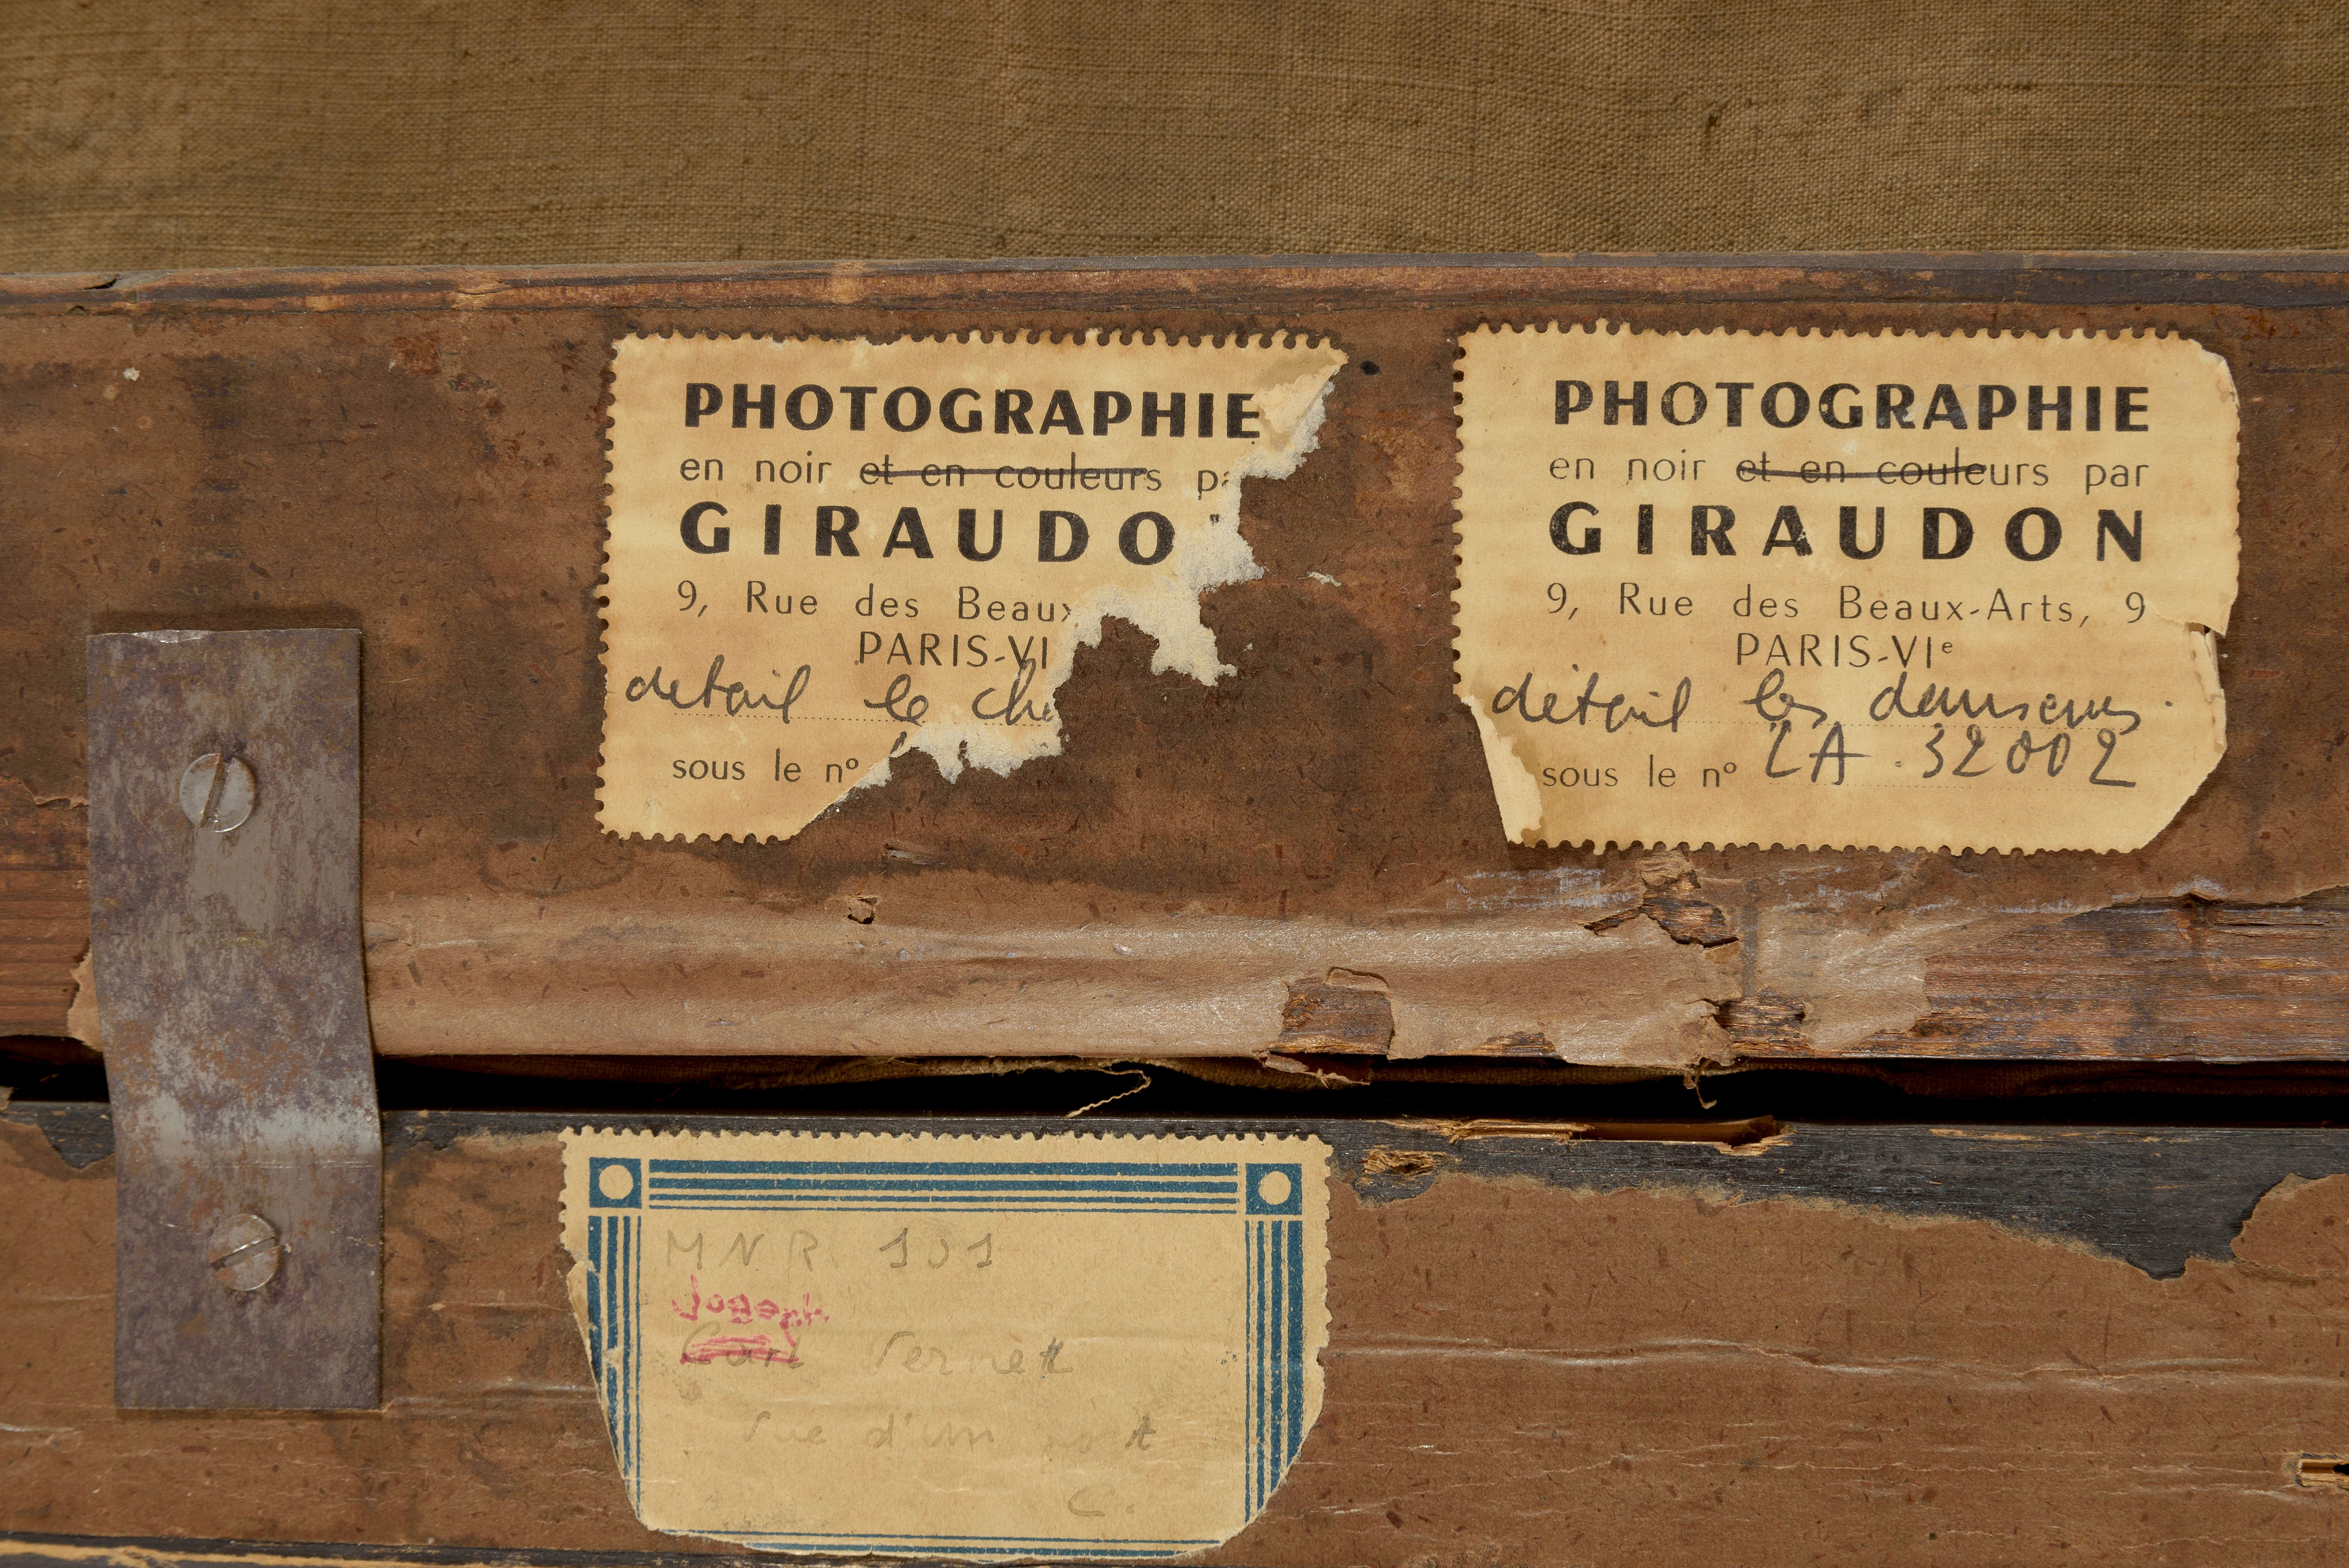 PHOTOGRAPHIE
en noir et en couleurs pa
GIRAUDO
9, Rue des Beaux
PARIS-VI
détail le ch
sous le nº
PHOTOGRAPHIE
en noir et en couleurs par
GIRAUDON
9, Rue des Beaux-Arts, 9
PARIS-VIᵉ
détail les danseurs
sous le nº LA. 32002
M N R 101
Joseph
Carl Vernet
Vue d'un port
C.